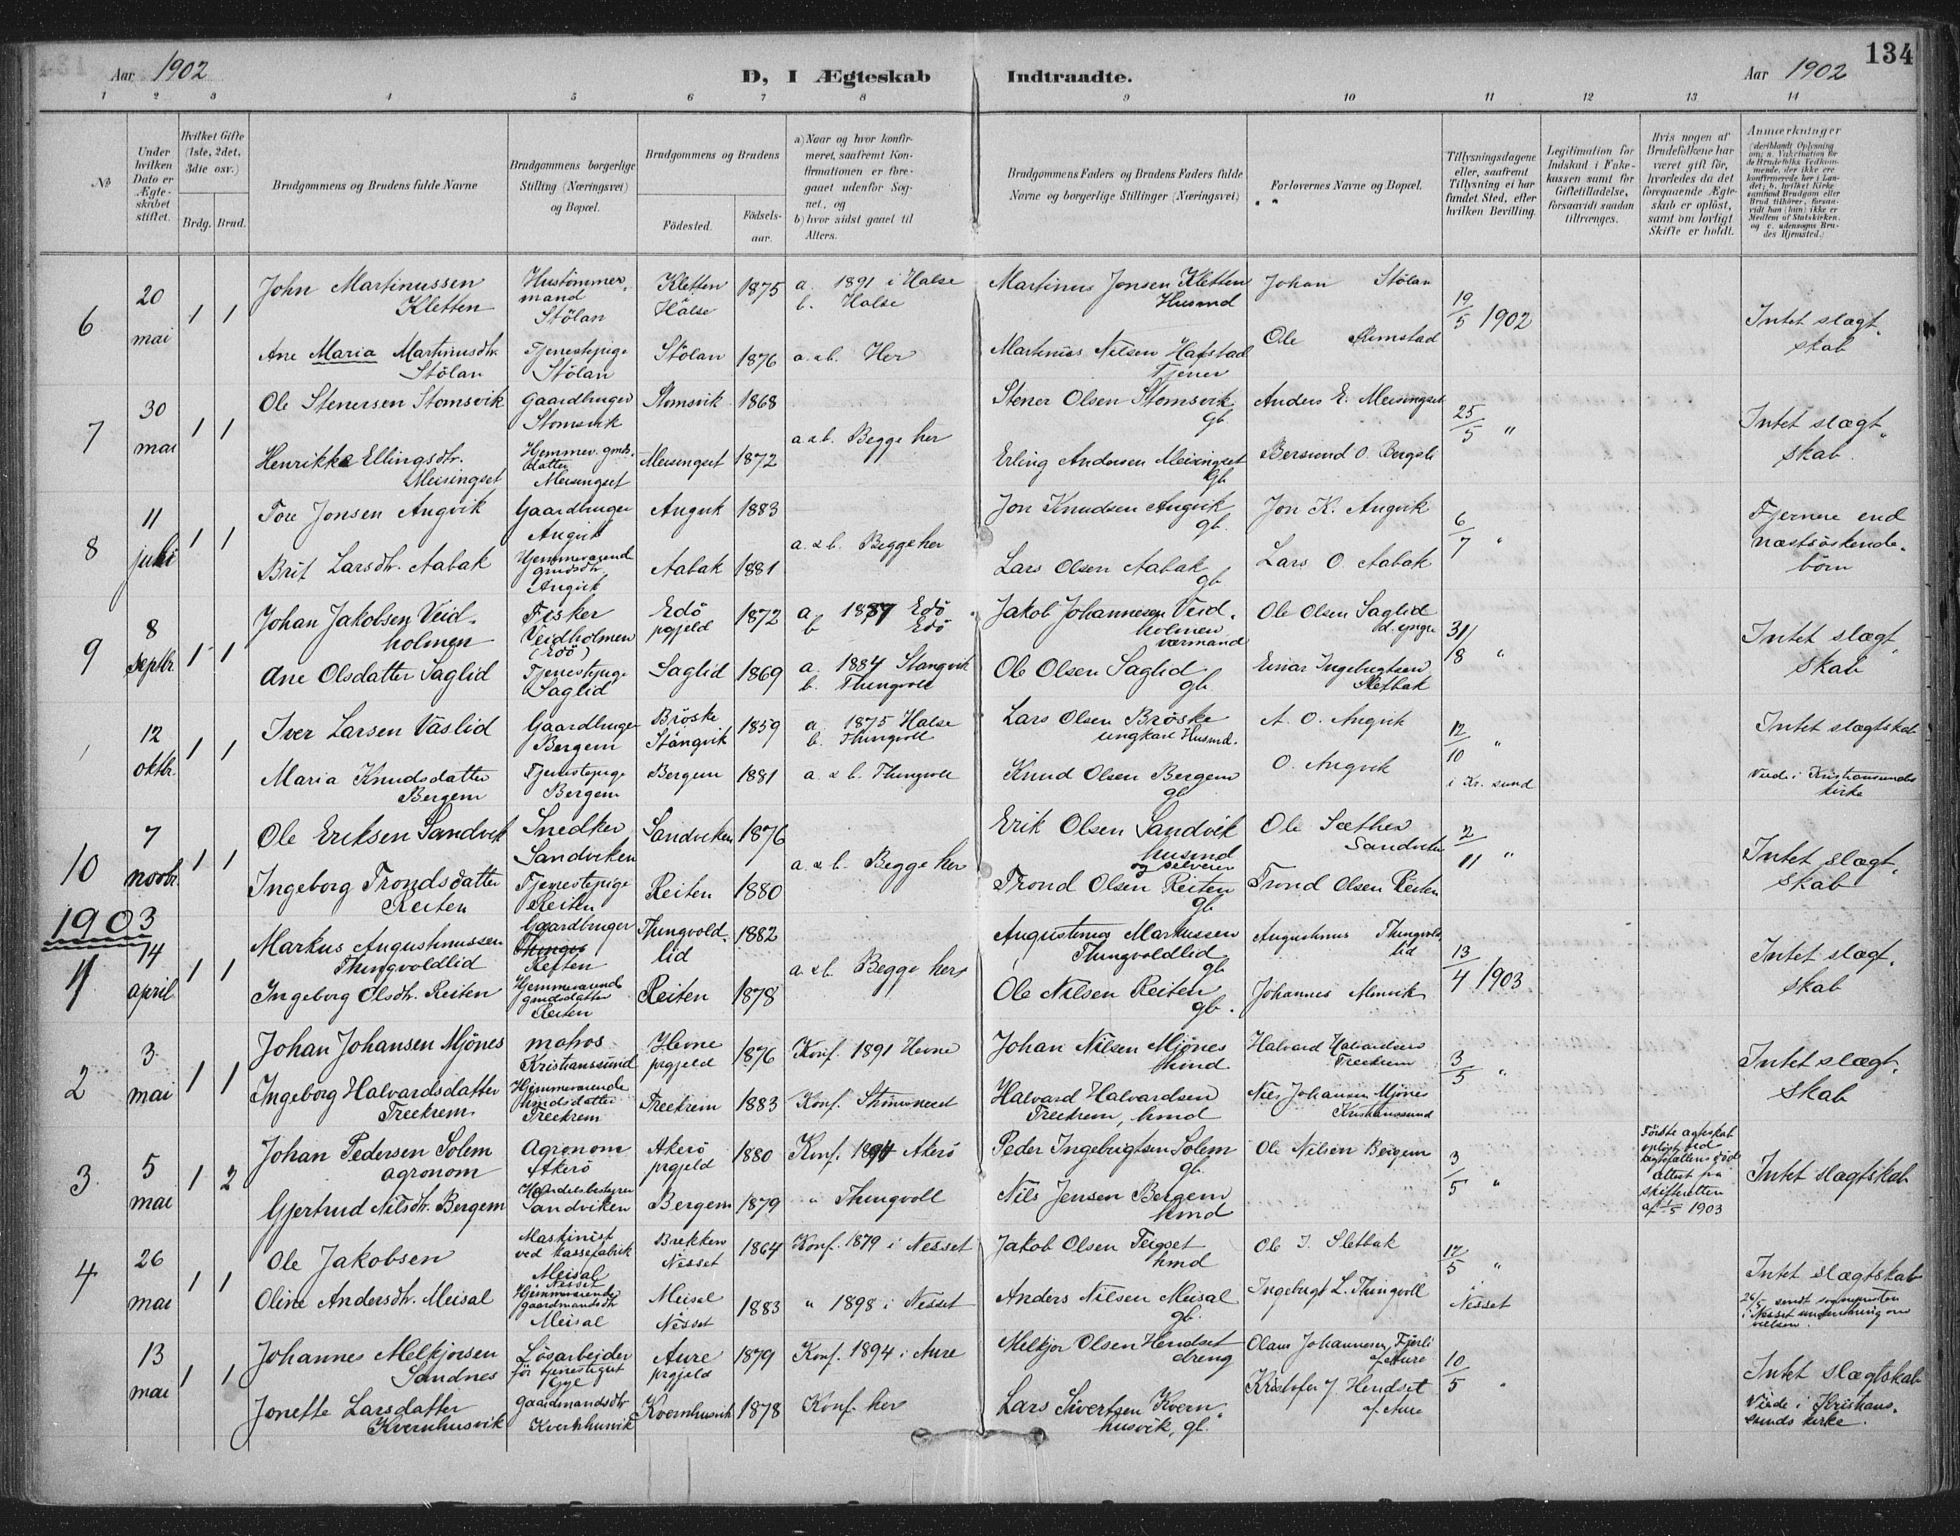 134
Aar 1902 D, I Ægteskab Indtraadte. Aar 1902
1 2 3 4 5 6 7 8 9 10 11 12 13 14
№
Under hvilken Dato er Ægteskabet stiftet.
Hvilket Gifte (1ste, 2det, 3die osv.)
Brdg. Brud.
Brudgommens og Brudens fulde Navne
Brudgommens borgerlige Stilling (Næringsvei) og Bopæl.
Brudgommens og Brudens
Födested. Födselsaar.
a) Naar og hvor konfirmeret, saafremt Konfirmationen er foregaaet udenfor Sognet, og
b) hvor sidst gaaet til Alters.
Brudgommens Faders og Brudens Faders fulde Navne og borgerlige Stillinger (Næringsvei)
Forlovernes Navne og Bopæl.
Tillysningsdagene eller, saafremt Tillysning ei har fundet Sted, efter hvilken Bevilling.
Legitimation for Indskud i Enkekassen samt for Giftetilladelse, forsaavidt saadan tiltrænges.
Hvis nogen af Brudefolkene har været gift för, hvorledes da det foregaaende Ægteskab er oplöst, samt om lovligt Skifte er holdt.
Anmærkninger
6 20 mai 1 1
John Martinussen Kletten
Hustömmermand Stölan
Kletten Halse 1875
a. 1891 i Halse
b. Halse
Martinus Jonsen Kletten Husmd
Johan Stölan
19/5 1902
Intet slægtskab
Ane Maria Martinusdtr. Stölan
Tjenestepige Stölan
Stölan 1876
a. & b. Her
Martinus Nilsen Hafstad Tjener
Ole Rimstad
7 30 mai 1 1
Ole Stenersen Stomsvik
Gaardbruger Stomsvik
Stomsvik 1868
a & b. Begge her
Stener Olsen Stomsvik gb.
Anders E. Meisingset
25/5 "
Intet slægtskab.
Henrikke Ellingsdtr. Meisingset
Meisingset
Meisingset 1872
Erling Andersen Meisingset gb
Bersvend O. Bergsli
8 11 juli 1 1
Tore Jonsen Angvik
Gaardbruger Angvik
Angvik 1883
a. & b. Begge her
Jon Knudsen Angvik gb.
Jon K. Angvik
6/7 "
Fjernere end næstsöskendebörn
Brit Larsdtr. Aabak
Hjemmeværend gmdsdtr Angvik
Aabak 1881
Lars Olsen Aabak gb
Lars O. Aabak
9 8 septbr 1 1
Johan Jakobsen Veidholmen
Fisker Veidholmen (Edö)
Edö prgjeld 1872
a 1887 Edö
b Edö
Jakob Johannesen Veidholmen
Ole Olsen Saglid d. yngre
31/8 "
Intet slægtskab
Ane Olsdatter Saglid
Tjenestepige Saglid
Saglid 1869
a. 1884 Stangvik
b. Thingvoll
Ole Olsen Saglid gb.
Einar Ingebrigtsen Sletbak
12 oktbr. 1 1
Iver Larsen Vaslid
Gaardbruger Bergem
Bröske Stangvik 1859
a. 1875 Halse
b. Thingvoll
Lars Olsen Bröske ungkarl Husmd.
A. O. Angvik
12/10 " i Kr. sund
Intet slægtskab
Maria Knudsdatter Bergem
Tjenestepige Bergem
Bergem 1881
a. & b. Thingvoll
Knud Olsen Bergem gb
O. Angvik
Viede i Kristiansunds kirke
10 7 novbr. 1 1
Ole Eriksen Sandvik
Snedker Sandviken
Sandviken 1876
a & b. Begge her
Erik Olsen Sandvik husmd og selveier
Ole Sæther Sandviken
2/11 "
Intet slægtskab
Ingeborg Trondsdatter Reiten
Tjenestepige Reiten
Reiten 1880
Trond Olsen Reiten gb.
Trond Olsen Reiten
1903
1 14 april 1 1
Markus Augustinussen Thingvoldlid
Gaardbruger Reiten
Thingvoldlid 1882
a & b. Begge her
Augustinus Markussen Thingvoldlid gb
Augustinus Thingvoldlid
13/4 1903
Intet slægtskab
Ingeborg Olsdtr. Reiten
Hjemmeværende gmdsdatter Reiten
Reiten 1878
Ole Nilsen Reiten gb.
Johannes Almvik
2 3 mai 1 1
Johan Johansen Mjönes
matros Kristianssund
Hevne prgjeld 1876
Konf. 1891 Hevne
Johan Nilsen Mjönes hmd
Halvard Halvardsen Treekrem
3/5 "
Intet slægtskab
Ingeborg Halvardsdatter Treekrem
Hjemmeværende hmdsdatter Treekrem
Treekrem 1883
Konf.
Halvard Halvardsen Treekrem, hmd
Nils Johansen Mjönes Kristianssund
3 5 mai 1 2
Johan Pedersen Solem agronom
Agronom Akerö
Akerö prgjeld 1880
Konf. 1894 Akerö
Peder Ingebrigtsen Solem gb.
Ole Nilsen Bergem
3/5 "
Förste ægteskab oplöst ved attest fra skifteretten af 1/5 1903
Intet slægtskab
Gjertrud Nilsdtr. Bergem
Handelsbestyrer Sandviken
Bergem 1879
" Thingvoll
Nils Jensen Bergem hmd
4 26 mai 1 1
Ole Jakobsen
Maskinist ved kassefabrik Meisal Nesset
Brekken Nesset 1864
Konf. 1879 i Nesset
Jakob Olsen Teigset hmd
Ole J. Sletbak
17/5 " i Nesset
Intet slægtskab
Oline Andersdtr. Meisal
Hjemmeværende gaardmandsdtr Meisal
Meisal Nesset 1883
" 1898 i Nesset
Anders Nilsen Meisal gb.
Ingebrigt L. Thingvoll
26/5 sendt sognepresten i Nesset underretning om vielsen.
13 mai 1 1
Johannes Melkjorsen Sandnes
Lösarbeider för tjenestegut
Aure prgjeld 1879
Konf. 1894 i Aure
Melkjor Olsen Hendset dreng
Olaus Johannesen Fjerli af Aure
10/5 "
Intet slægtskab
Jonette Larsdatter Kvernhusvik
Gaardmandsdtr Kvernhusvik
Kvernhusvik 1878
Konf. her
Lars Sivertsen Kvernhusvik, gb.
Kristofer J. Hendset af Aure
Viede i Kristianssunds kirke.